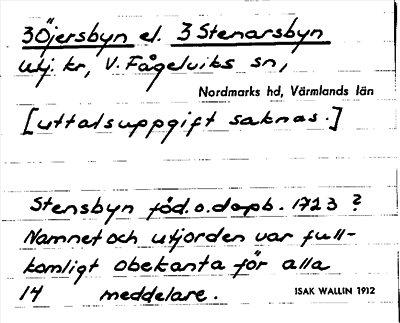 3 Öjersbyn el. 3 Stenarsbyn
utj. kr, V. Fågelviks sn,
Nordmarks hd, Värmlands län
[uttalsuppgift saknas.]
Stensbyn föd.o.dopb. 1723 ?
Namnet och utjorden var full-
komligt obekanta för alla
14 meddelare.
ISAK WALLIN 1912